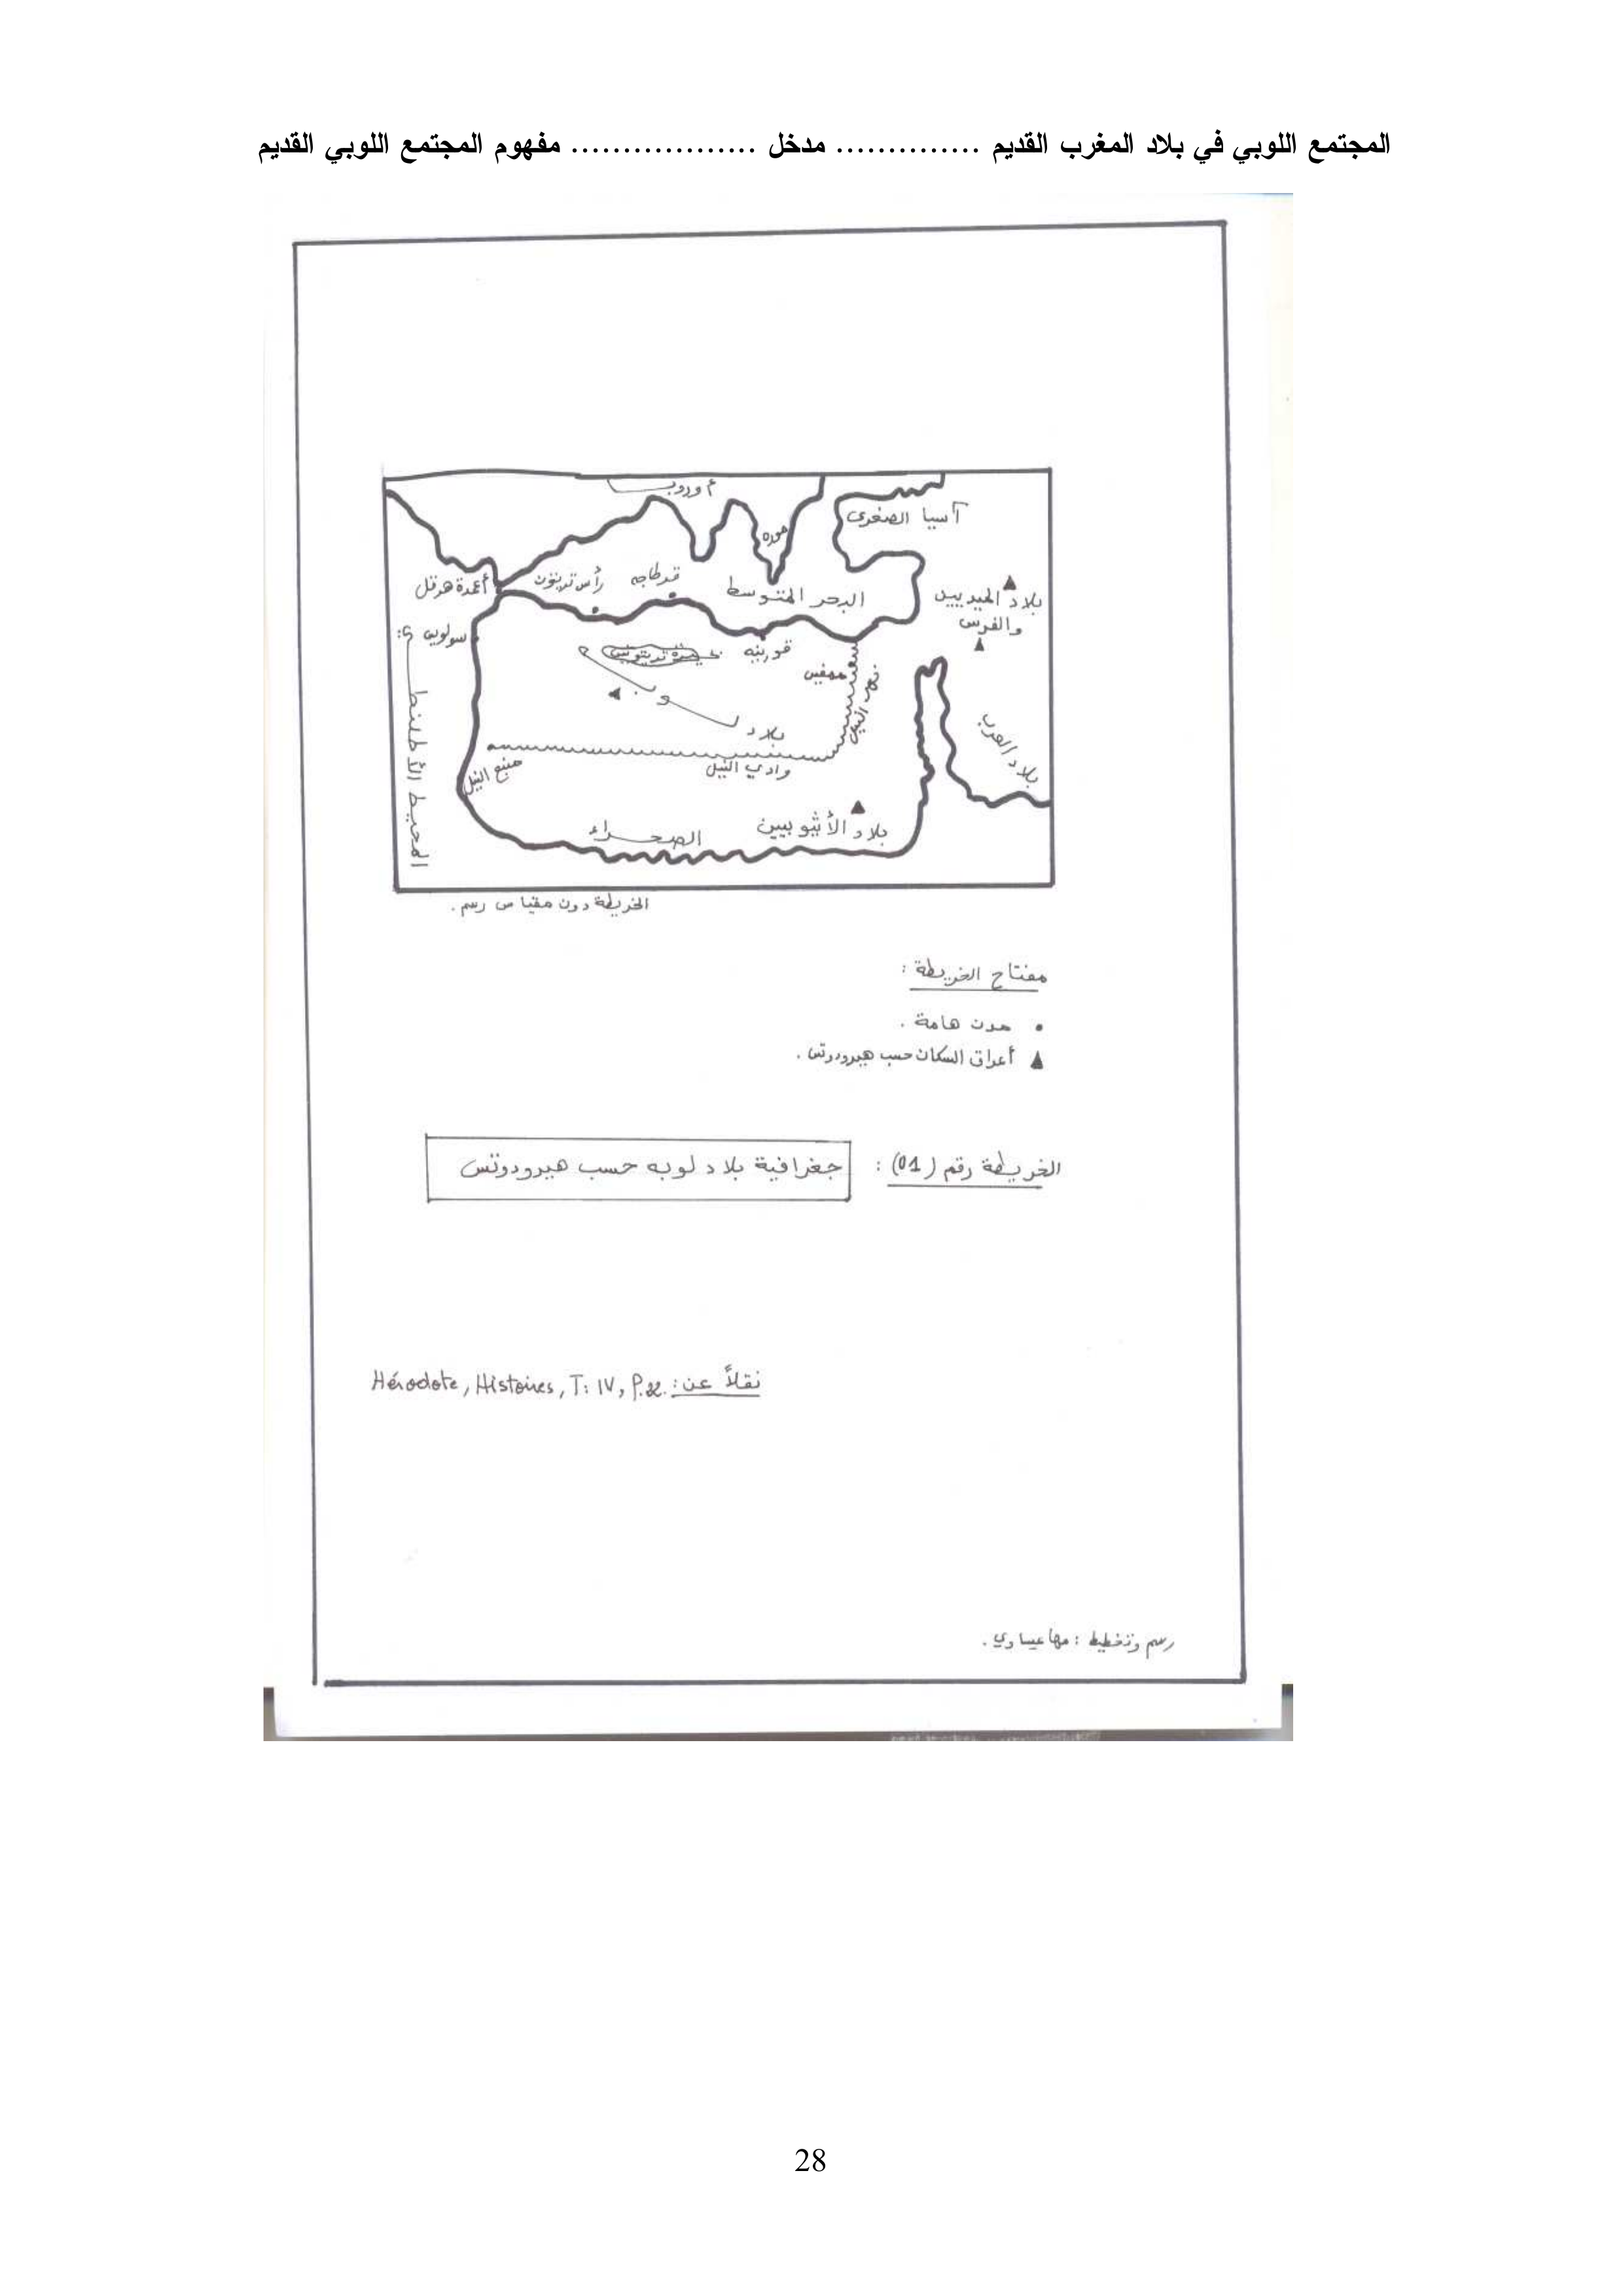 المجتمع اللوبي في بلاد المغرب القديم .............. مدخل .................. مفهوم المجتمع اللوبي القديم
أوروبـ
آسيا الصغرى
موره
أعمدة هرقل
رأس تريتون
قرطاجه
البحر المتوسط
بلاد الميديين
والفرس
سولويس
قورينه
ممفيس
نهر النيل
بلاد لـوبـ
بلاد العرب
وادي النيل
منبع النيل
المحيط الأطلنطـ
بلاد الأثيوبيين
الصحــراء
الخريطة دون مقياس رسم.
مفتاح الخريطة :
• مدن هامة .
▲ أعراق السكان حسب هيرودوتس .
الخريطة رقم (01) : جغرافية بلاد لوبه حسب هيرودوتس
نقلاً عن: Hérodote, Histoires, T: IV, P.
رسم وتخطيط : مها عيساوي .
28